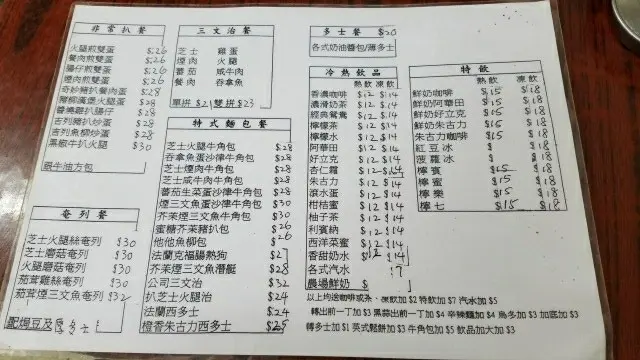 非常扒餐
火腿煎雙蛋 $26
餐肉煎雙蛋 $26
腸仔煎雙蛋 $26
煙肉煎雙蛋 $26
奇妙豬扒餐肉蛋 $28
豬柳漢堡火腿蛋 $28
香燒雞扒腸仔 $28
吉列豬扒炒蛋 $28
吉列魚柳炒蛋 $28
黑椒牛扒火腿 $30
跟牛油方包
奄列餐
芝士火腿絲奄列 $30
芝士蘑菇奄列 $30
火腿蘑菇奄列 $30
茄茸雞絲奄列 $30
茄茸煙三文魚奄列 $32
配焗豆及
三文治餐
芝士 雞蛋
煙肉 火腿
番茄 咸牛肉
餐肉 吞拿魚
單拼 $21 雙拼 $23
特式麵包餐
芝士火腿牛角包 $28
吞拿魚蛋沙律牛角包 $28
芝士煙肉牛角包 $28
芝士咸牛肉牛角包 $28
番茄生菜蛋沙律牛角包 $28
煙三文魚蛋沙律牛角包 $30
芥茉煙三文魚牛角包 $30
蜜糖芥茉豬扒包 $26
他他魚柳包 $26
法蘭克福腸熱狗 $27
芥茉煙三文魚潛艇 $28
公司三文治 $32
扒芝士火腿治 $24
法蘭西多士 $24
橙香朱古力西多士 $25
多士餐 $20
各式奶油醬包/薄多士
冷熱飲品
熱飲 凍飲
香濃咖啡 $12 $14
濃滑奶茶 $12 $14
經典鴛鴦 $12 $14
檸檬茶 $12 $14
檸檬水 $12 $14
阿華田 $12 $14
好立克 $12 $14
杏仁霜 $12 $14
朱古力 $12 $14
滾水蛋 $12 $14
柑桔蜜 $12 $14
柚子茶 $12 $14
利賓納 $12 $14
西洋菜蜜 $12 $14
香甜奶水 $12 $14
各式汽水 $7
農場鮮奶 $
特飲
熱飲 凍飲
鮮奶咖啡 $15 $18
鮮奶阿華田 $15 $18
鮮奶好立克 $15 $18
鮮奶朱古力 $15 $18
朱古力咖啡 $15 $18
紅豆冰 $ $18
菠蘿冰 $ $18
檸賓 $15 $18
檸蜜 $15 $18
檸樂 $15 $18
檸七 $15 $18
以上均送咖啡或茶、凍飲加 $2 特飲加 $7 汽水加 $5
轉出前一丁加 $3 黑蒜出前一丁加 $4 辛辣麵加 $4 烏冬加 $3 加底加 $3
轉多士加 $1 英式鬆餅加 $3 牛角包加 $5 飲品加大加 $3